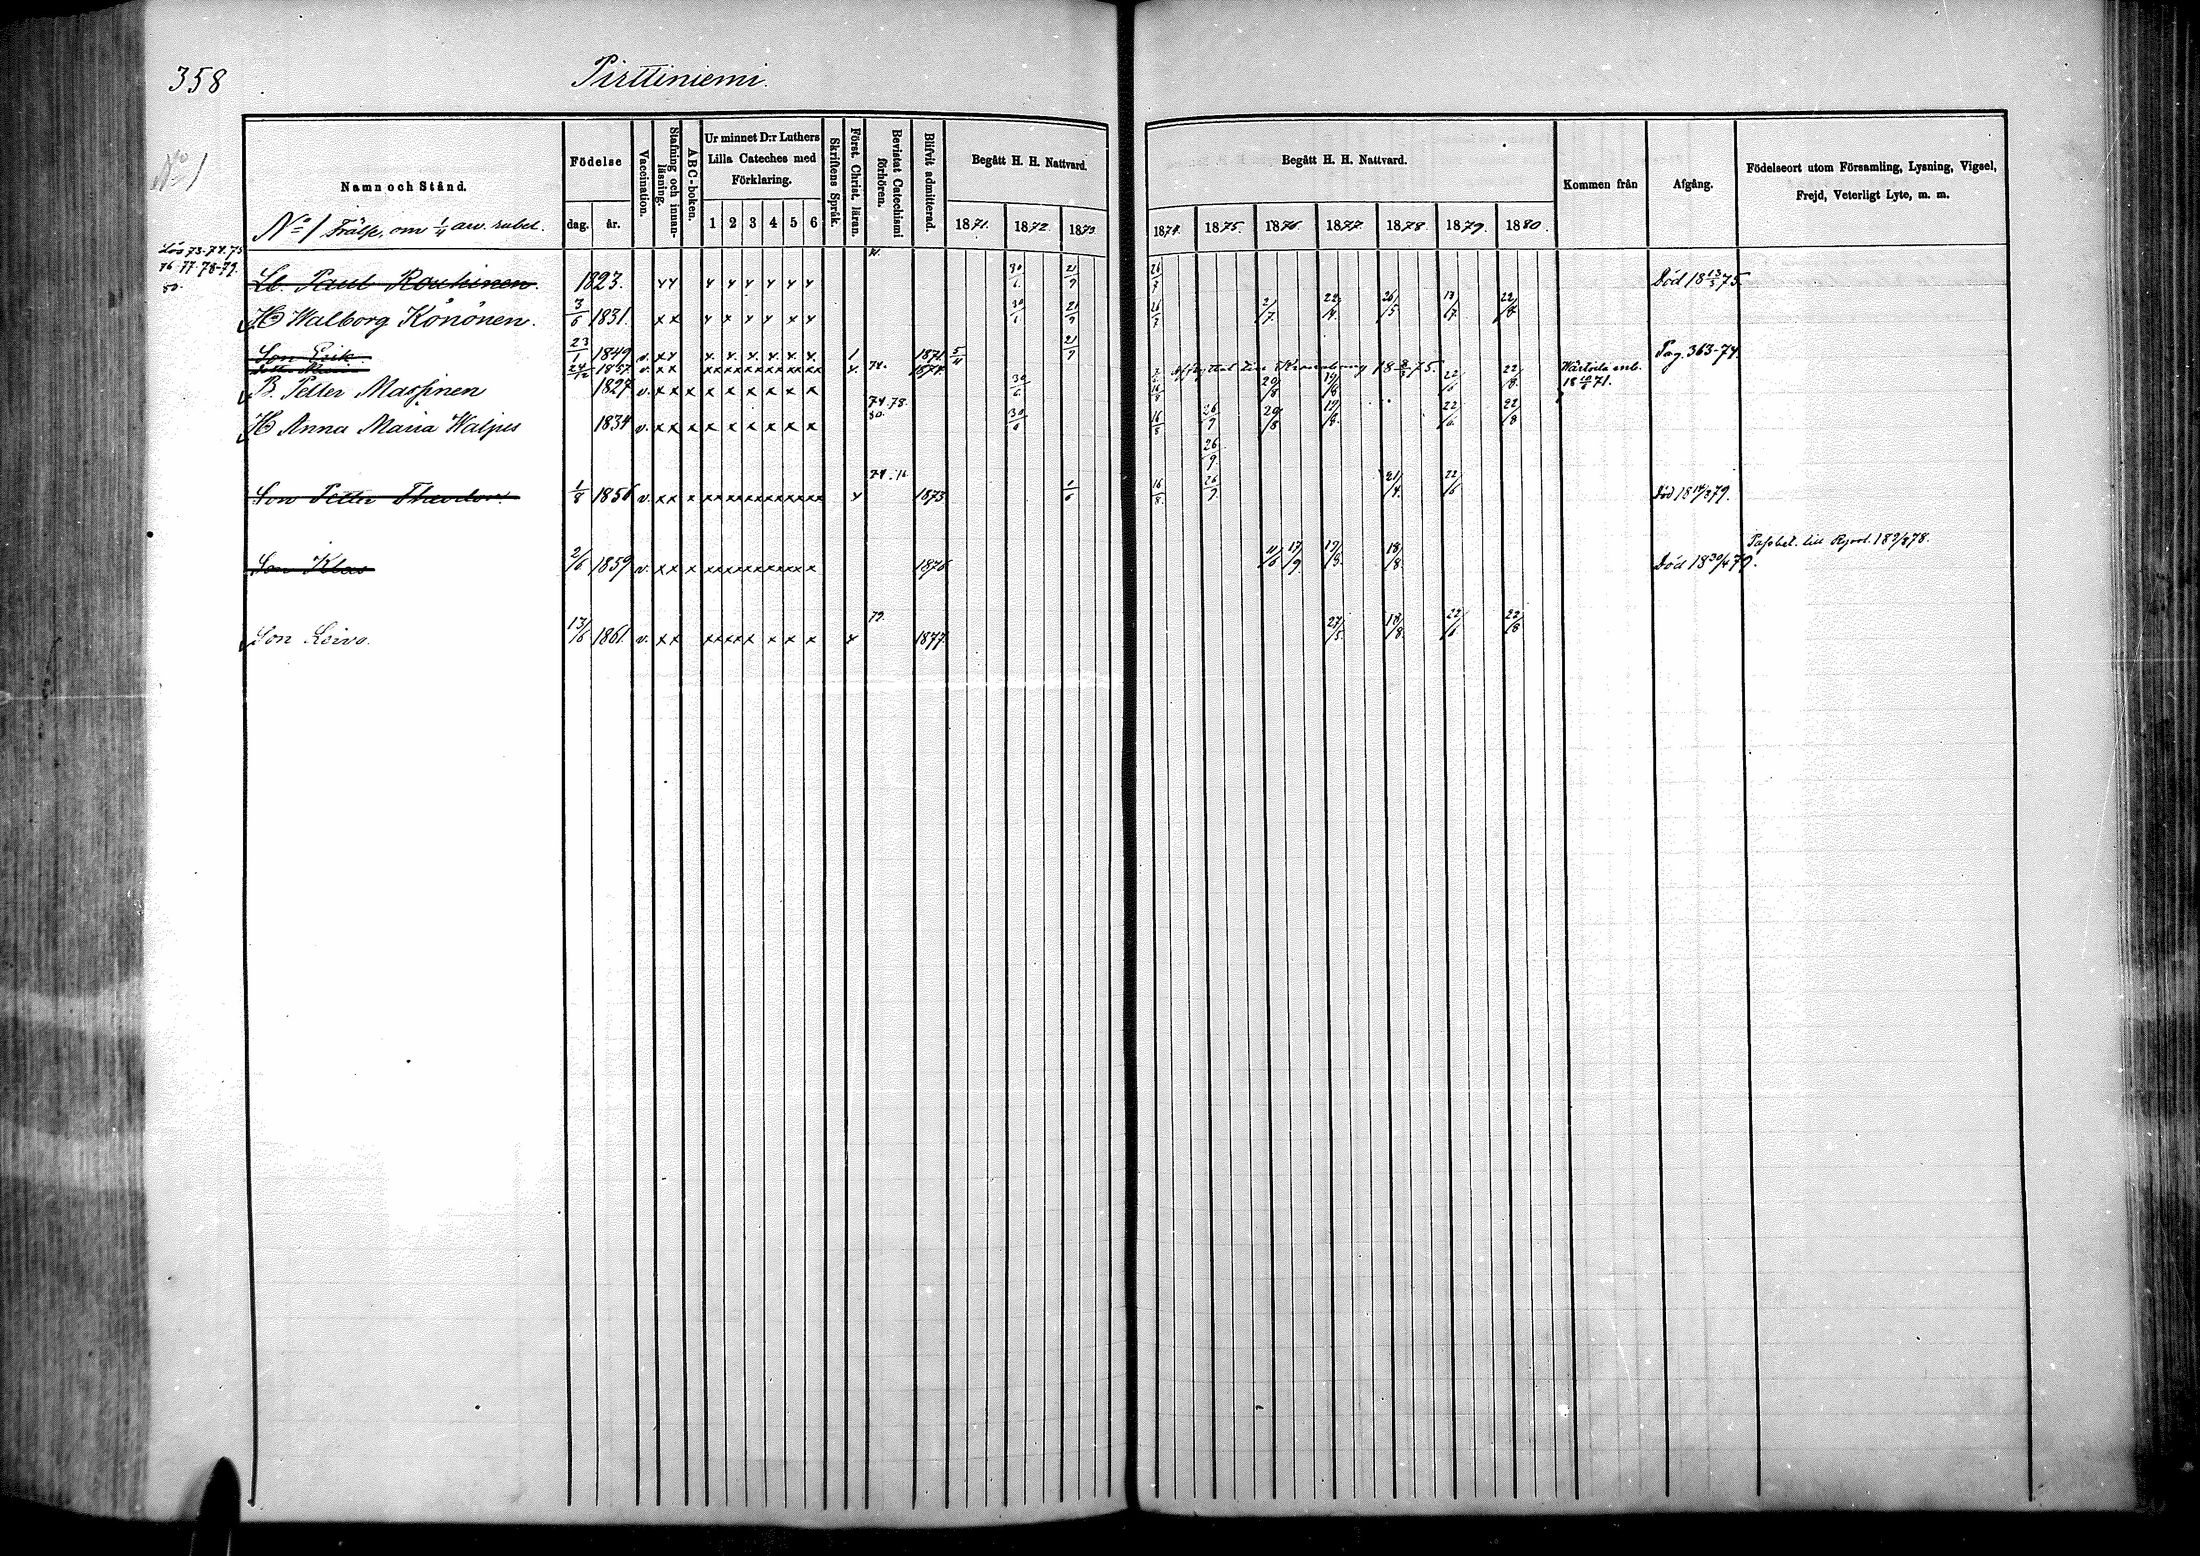 358
Pirttiniemi.
No 1
Namn och Stånd.
Födelse
dag. år.
Vaccination.
Stafning och innanläsning.
ABC-boken.
Ur minnet D:r Luthers Lilla Cateches med Förklaring.
1 2 3 4 5 6
Skriftens Språk.
Först. Christ. läran.
Bevistat Catechismi förhören.
Blifvit admitterad.
Begått H. H. Nattvard.
1871. 1872. 1873.
Begått H. H. Nattvard.
1874. 1875. 1876. 1877. 1878. 1879. 1880.
Kommen från
Afgång.
Födelseort utom Församling, Lysning, Vigsel, Frejd, Veterligt Lyte, m. m.
No 1 Frälse, om 1/4 arv. rubel.
73. 74. 75
76. 77. 78-79.
80.
Lb. Paul Rouhinen. 1823. xx x x x x x x 30/6 21/9 26/7 Död 18 13/3 75.
H Walborg Könönen. 3/6 1831. xx x x x x x x 30/6 21/9 26/7 2/7 22/4 26/5 22/8
Son Erik 23/1 1849 v. xx x. x. x. x. x. x. 1 1871 5/4 21/9 Pag. 363-74.
24/12 1857 v. xx xxxxxxxxxxx x. 74. 1874. 18 2/3 75.
B. Petter Massinen 1827 v. xx x x x x x x x 30/6 16/8 20/8 19/8 22/6 22/8 Wärtsilä 1871.
H Anna Maria Walpus 1834 v. xx x x x x x x x 74. 78. 80. 30/6 16/8 26/9 20/8 19/8 22/6 22/8
26/9
Son Petter Theodor. 1/8 1856 v. xx x xxxxxxxxxxxx x 1873 1/6 16/8 26/9 21/4 22/6 Död 18 14/2 79.
Son Klas 2/6 1859 v. xx x xxxxxxxxxxx 1876 11/6 17/9 19/8 18/8 Död 18 30/4 79.
till 78.
Son Leivo. 13/6 1861. v. xx xxxxx x x x x 79. 1877. 27/5 18/8 22/6 22/8